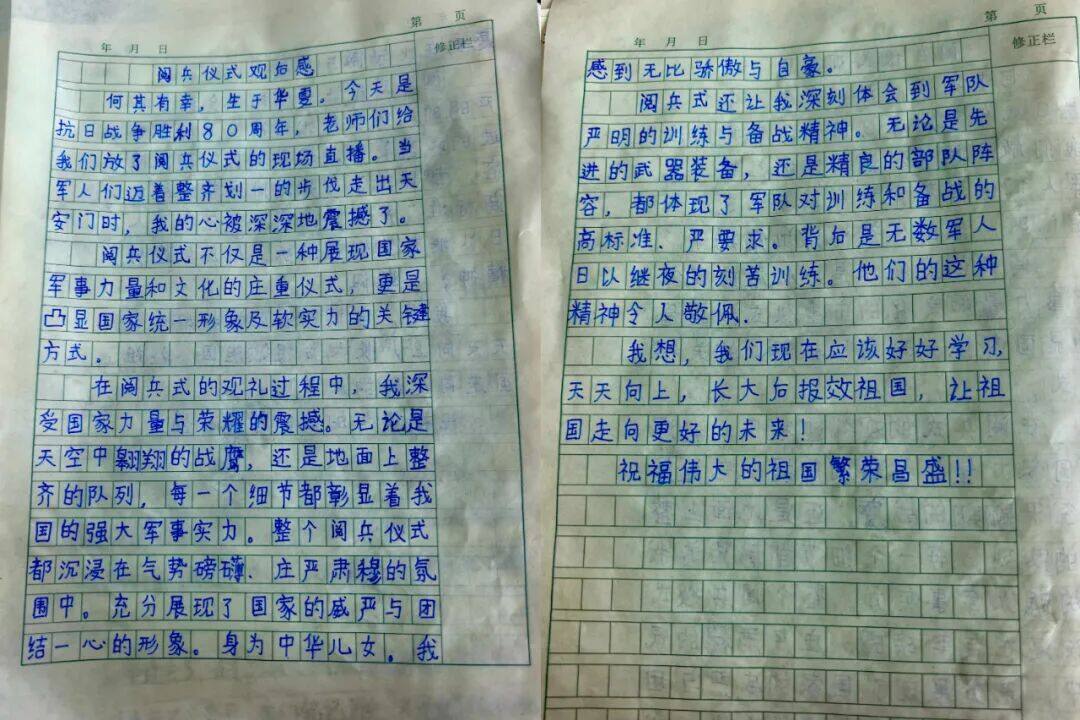 第 页
年 月 日
修正栏
阅兵仪式观后感
何其有幸，生于华夏。今天是
抗日战争胜利80周年，老师们给
我们放了阅兵仪式的现场直播。当
军人们迈着整齐划一的步伐走出天
安门时，我的心被深深地震撼了。
阅兵仪式不仅是一种展现国家
军事力量和文化的庄重仪式，更是
凸显国家统一形象及软实力的关键
方式。
在阅兵式的观礼过程中，我深
受国家力量与荣耀的震撼。无论是
天空中翱翔的战鹰，还是地面上整
齐的队列，每一个细节都彰显着我
国的强大军事实力。整个阅兵仪式
都沉浸在气势磅礴、庄严肃穆的氛
围中。充分展现了国家的威严与团
结一心的形象。身为中华儿女，我
第 页
年 月 日
修正栏
感到无比骄傲与自豪。
阅兵式还让我深刻体会到军队
严明的训练与备战精神。无论是先
进的武器装备，还是精良的部队阵
容，都体现了军队对训练和备战的
高标准、严要求。背后是无数军人
日以继夜的刻苦训练。他们的这种
精神令人敬佩.
我想，我们现在应该好好学习，
天天向上，长大后报效祖国，让祖
国走向更好的未来！
祝福伟大的祖国繁荣昌盛!!